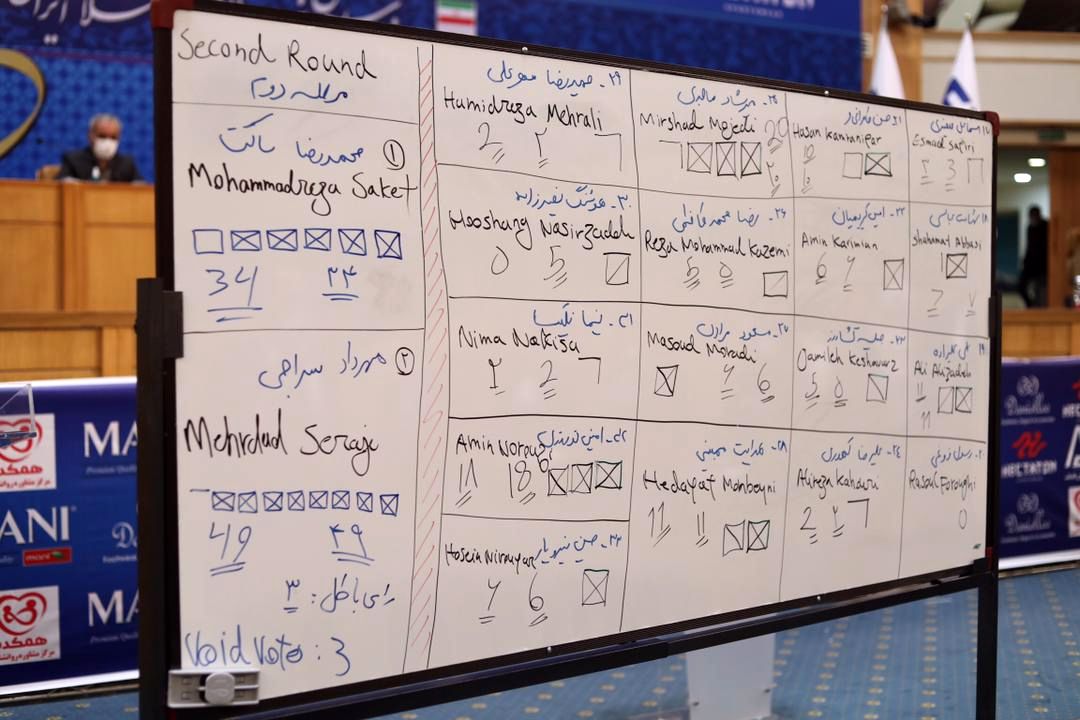 Second Round
مرحله دوم
① محمدرضا ساکت
Mohammadreza Saket
34 ۳۴
② مهرداد سراجی
Mehrdad Seraji
49 ۴۹
رای باطل: ۳
Void Vote: 3
۲۹- حمیدرضا مهرعلی
Hamidreza Mehrali
2 ۲
۳۰- هوشنگ نصیرزاده
Hooshang Nasirzadeh
۵ 5
۳۱- نیما نکیسا
Nima Nakisa
۲ 2
۳۲- امین نوروزی
Amin Norouzi
18
۳۳- حسین نیرویار
Hosein Nirouyar
۶ 6
۲۵- میرشاد ماجدی
Mirshad Majedi
20
۲۰
۲۶- رضا محمد کاظمی
Reza Mohammad Kazemi
5 ۵
۲۷- مسعود مرادی
Masoud Moradi
۶ 6
۲۸- هدایت ممبینی
Hedayat Mombeyni
11 ۱۱
Hasan Kamranifar
10
۱۰
۲۲- امین کریمیان
Amin Karimian
6 ۶
۲۳- جمیله کشاورز
Jamileh Keshavarz
5 ۵
۲۴- علیرضا کهوری
Alireza Kahouri
2 ۲
۱۷
Esmaeil Safiri
3
۱۸
Shahamat Abbasi
7 ۷
۱۹- علی علیزاده
Ali Alizadeh
11
۱۱
۲۰
Rasoul Foroughi
همکده
مرکز مشاوره روانشناسی
MA
ANI
MA
همکده
Danielles
NECTATON